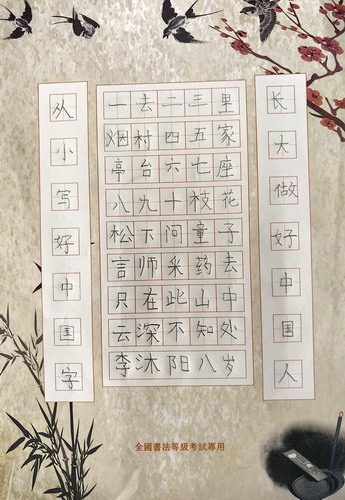 从小写好中国字
一去二三里
烟村四五家
亭台六七座
八九十枝花
松下问童子
言师采药去
只在此山中
云深不知处
李沐阳八岁
长大做好中国人
全國書法等級考試專用